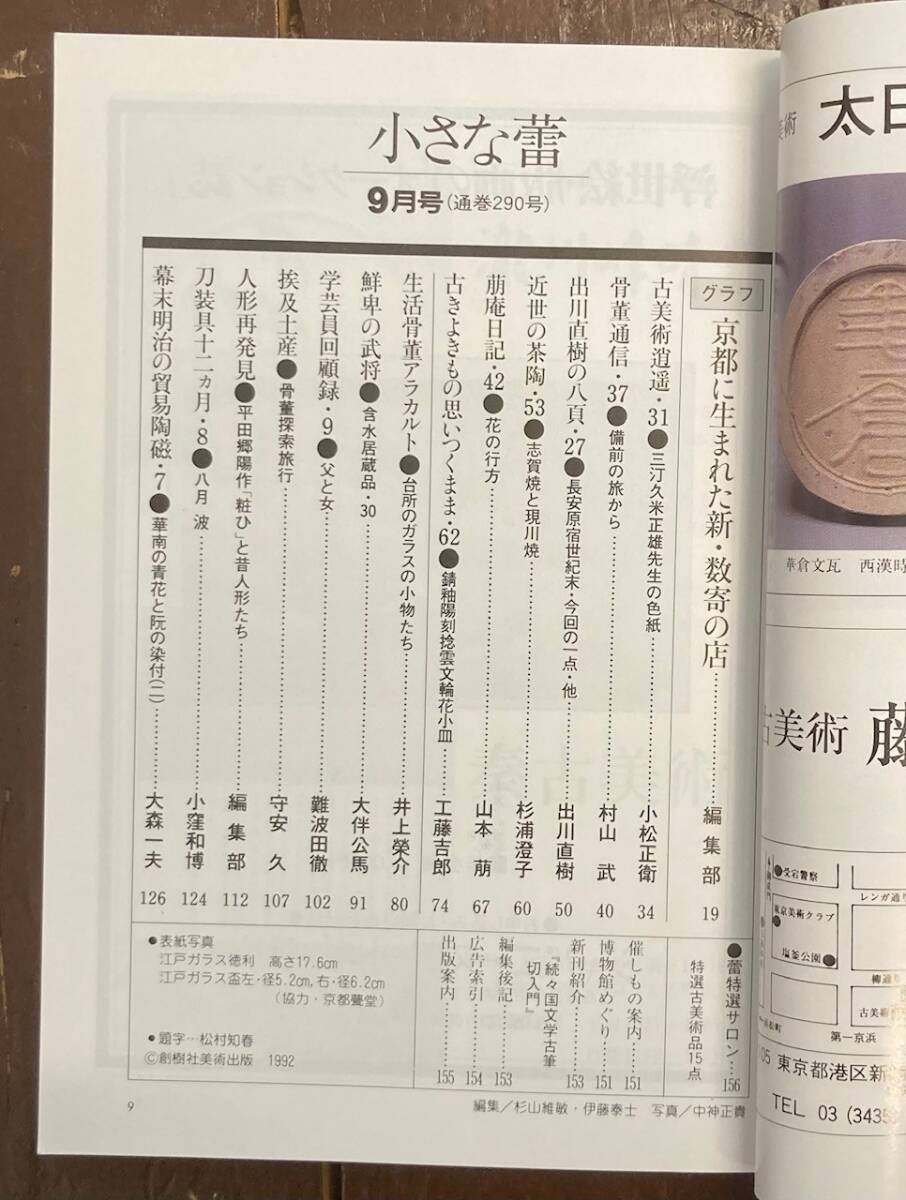 小さな蕾
9月号(通巻290号)
グラフ 京都に生まれた新・数寄の店……編集部 19
古美術逍遥・31●三汀久米正雄先生の色紙……小松正衛 34
骨董通信・37●備前の旅から……村山 武 40
出川直樹の八頁・27●長安原宿世紀末・今回の一点・他……出川直樹 50
近世の茶陶・53●志賀焼と現川焼……杉浦澄子 60
萠庵日記・42●花の行方……山本 萠 67
古きよきもの思いつくまま・62●錆釉陽刻捻雲文輪花小皿……工藤吉郎 74
生活骨董アラカルト●台所のガラスの小物たち……井上榮介 80
鮮卑の武将●含水居蔵品・30……大伴公馬 91
学芸員回顧録・9●父と女……難波田徹 102
挨及土産●骨董探索旅行……守安 久 107
人形再発見●平田郷陽作「粧ひ」と昔人形たち……編集部 112
刀装具十二ヵ月・8●八月 波……小窪和博 124
幕末明治の貿易陶磁・7●華南の青花と阮の染付(二)……大森一夫 126
●蕾特選サロン……156
特選古美術品15点
催しもの案内……151
博物館めぐり……151
新刊紹介……153
『続々国文学古筆
切入門』
編集後記……153
広告索引……154
出版案内……155
●表紙写真
江戸ガラス徳利 高さ17.6cm
江戸ガラス盃左・径5.2cm,右・径6.2cm
(協力・京都甍堂)
●題字…松村知春
©創樹社美術出版 1992
編集/杉山維敏・伊藤泰士 写真/中神正貴
9
美術 太
華倉文瓦 西漢時
古美術 藤
受宕警察
レンガ通り
東京美術クラブ
塩釜公園
柳通り
古美術
第一京浜
05 東京都港区新
TEL 03 (3435